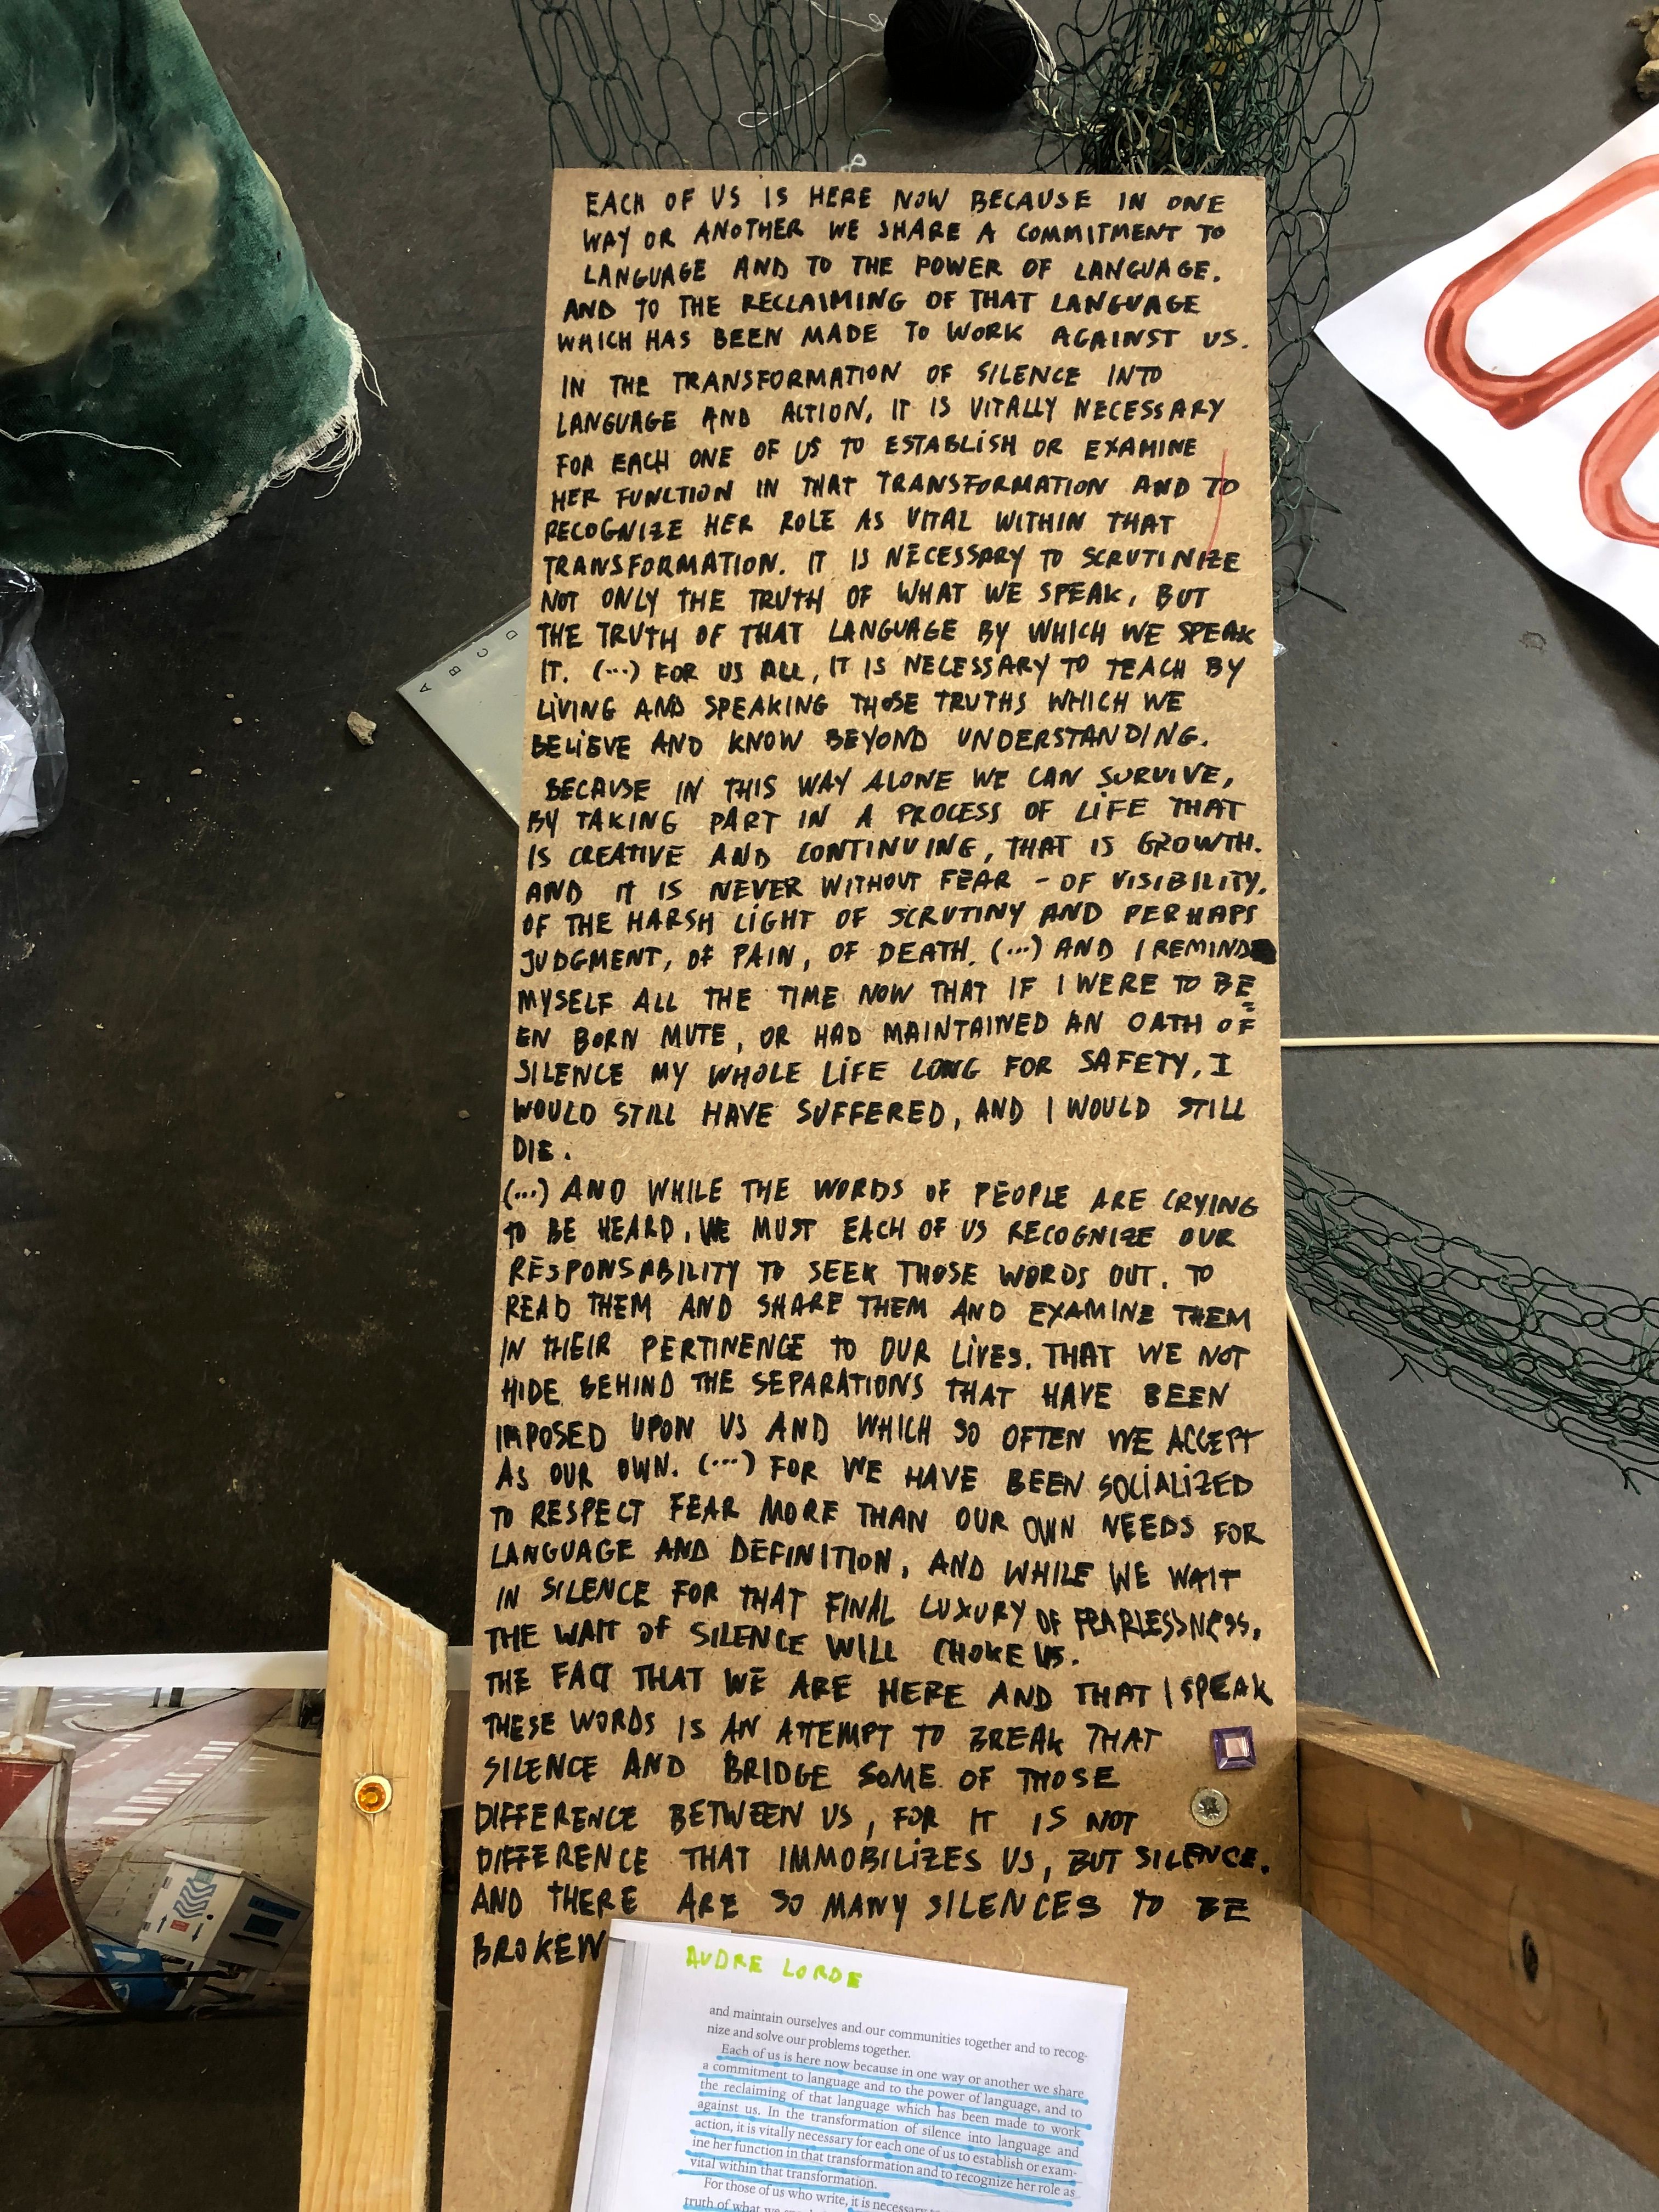 EACH OF US IS HERE NOW BECAUSE IN ONE
WAY OR ANOTHER WE SHARE A COMMITMENT TO
LANGUAGE AND TO THE POWER OF LANGUAGE.
AND TO THE RECLAIMING OF THAT LANGUAGE
WHICH HAS BEEN MADE TO WORK AGAINST US.
IN THE TRANSFORMATION OF SILENCE INTO
LANGUAGE AND ACTION, IT IS VITALLY NECESSARY
FOR EACH ONE OF US TO ESTABLISH OR EXAMINE
HER FUNCTION IN THAT TRANSFORMATION AND TO
RECOGNIZE HER ROLE AS VITAL WITHIN THAT
TRANSFORMATION. IT IS NECESSARY TO SCRUTINIZE
NOT ONLY THE TRUTH OF WHAT WE SPEAK, BUT
THE TRUTH OF THAT LANGUAGE BY WHICH WE SPEAK
IT. (...) FOR US ALL, IT IS NECESSARY TO TEACH BY
LIVING AND SPEAKING THOSE TRUTHS WHICH WE
BELIEVE AND KNOW BEYOND UNDERSTANDING.
BECAUSE IN THIS WAY ALONE WE CAN SURVIVE,
BY TAKING PART IN A PROCESS OF LIFE THAT
IS CREATIVE AND CONTINUING, THAT IS GROWTH.
AND IT IS NEVER WITHOUT FEAR - OF VISIBILITY,
OF THE HARSH LIGHT OF SCRUTINY AND PERHAPS
JUDGMENT, OF PAIN, OF DEATH. (...) AND I REMIND
MYSELF ALL THE TIME NOW THAT IF I WERE TO BE=
EN BORN MUTE, OR HAD MAINTAINED AN OATH OF
SILENCE MY WHOLE LIFE LONG FOR SAFETY, I
WOULD STILL HAVE SUFFERED, AND I WOULD STILL
DIE.
(...) AND WHILE THE WORDS OF PEOPLE ARE CRYING
TO BE HEARD, WE MUST EACH OF US RECOGNIZE OUR
RESPONSABILITY TO SEEK THOSE WORDS OUT. TO
READ THEM AND SHARE THEM AND EXAMINE THEM
IN THEIR PERTINENCE TO OUR LIVES. THAT WE NOT
HIDE BEHIND THE SEPARATIONS THAT HAVE BEEN
IMPOSED UPON US AND WHICH SO OFTEN WE ACCEPT
AS OUR OWN. (...) FOR WE HAVE BEEN SOCIALIZED
TO RESPECT FEAR MORE THAN OUR OWN NEEDS FOR
LANGUAGE AND DEFINITION, AND WHILE WE WAIT
IN SILENCE FOR THAT FINAL LUXURY OF FEARLESSNESS,
THE WAIT OF SILENCE WILL CHOKE US.
THE FACT THAT WE ARE HERE AND THAT I SPEAK
THESE WORDS IS AN ATTEMPT TO BREAK THAT
SILENCE AND BRIDGE SOME OF THOSE
DIFFERENCE BETWEEN US, FOR IT IS NOT
DIFFERENCE THAT IMMOBILIZES US, BUT SILENCE.
AND THERE ARE SO MANY SILENCES TO BE
BROKEN
AUDRE LORDE
and maintain ourselves and our communities together and to recog-
nize and solve our problems together.
Each of us is here now because in one way or another we share
a commitment to language and to the power of language, and to
the reclaiming of that language which has been made to work
against us. In the transformation of silence into language and
action, it is vitally necessary for each one of us to establish or exam-
ine her function in that transformation and to recognize her role as
vital within that transformation.
For those of us who write, it is necessary
truth of what we
A B C D